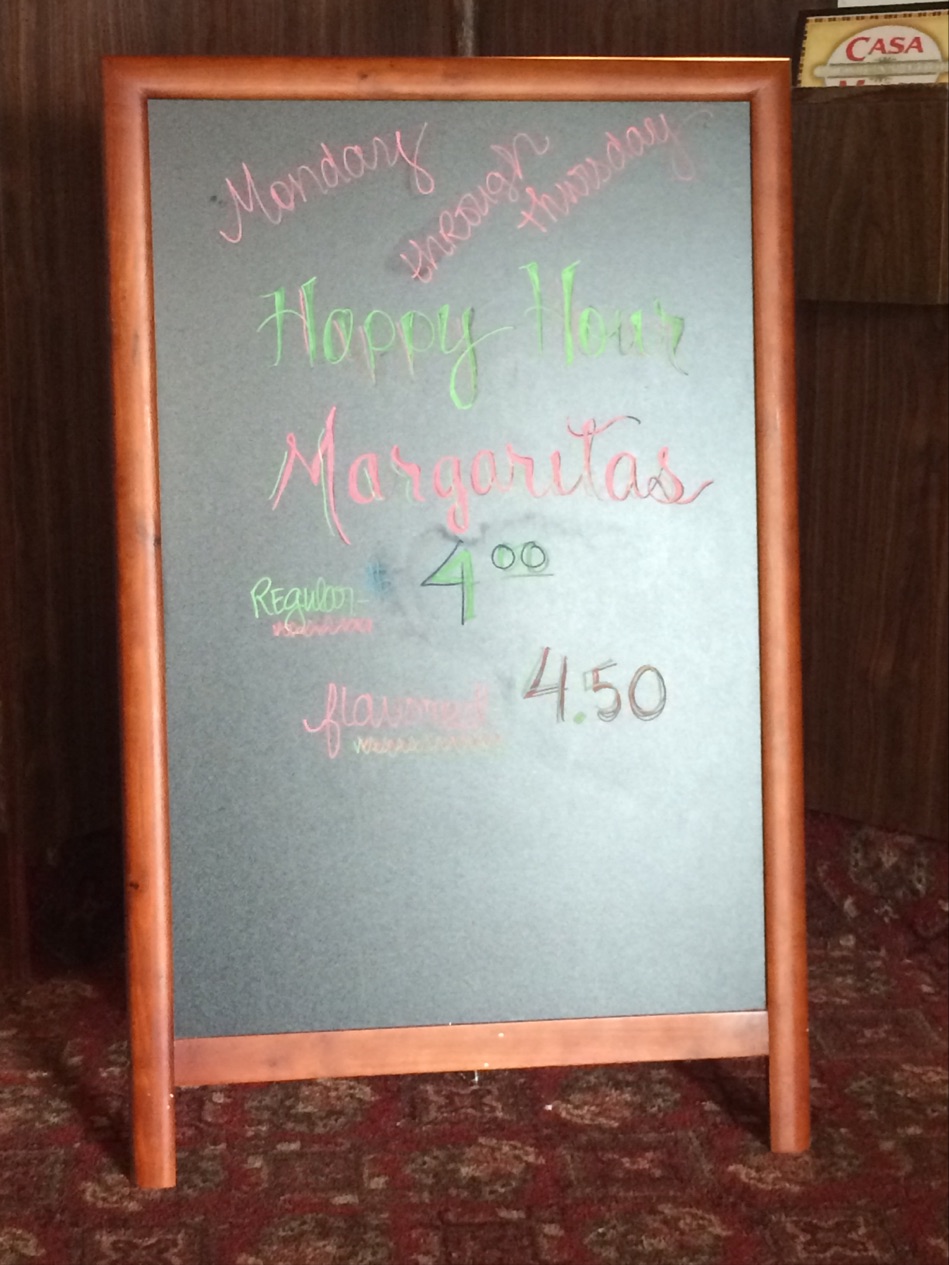 CASA
Monday
through
thursday
Happy Hour
Margaritas
Regular 4.00
flavored 4.50